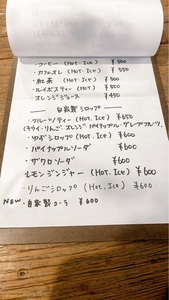 ・コーヒー (HOT. ICE) ¥500
・カフェオレ (HOT. ICE) ¥550
・紅茶 (HOT. ICE) ¥500
・ルイボスティー (HOT. ICE) ¥500
・オレンジジュース ¥450
自家製シロップ
・フルーツティー (HOT. ICE) ¥650
(キウイ・りんご・オレンジ・パイナップル・グレープフルーツ)
・ゆずシロップ (HOT. ICE) ¥600
・パイナップルソーダ ¥600
・ザクロソーダ ¥600
・レモンジンジャー (HOT. ICE) ¥600
・りんごシロップ (HOT. ICE) ¥600
NEW・自家製コーラ ¥600